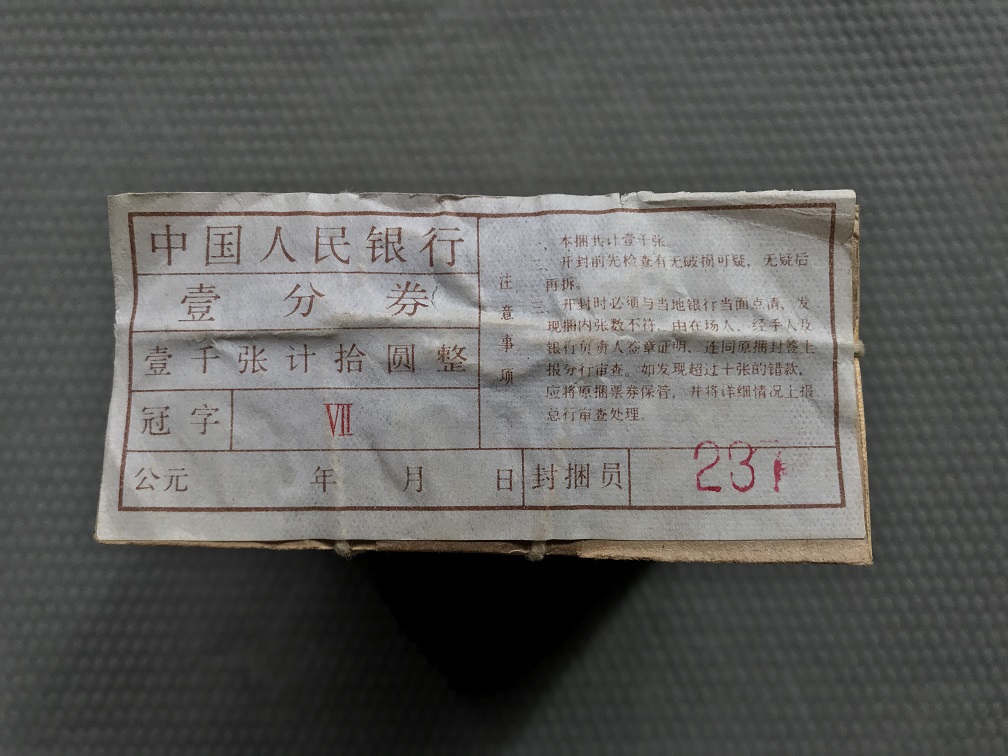 中国人民银行
壹分券
壹千张计拾圆整
冠字 Ⅶ
公元 年 月 日 封捆员 231
注意事项
一、本捆共计壹千张
二、开封前先检查有无破损可疑，无疑后
再拆。
三、开封时必须与当地银行当面点清，发
现捆内张数不符，由在场人、经手人及
银行负责人签章证明，连同原捆封签上
报分行审查。如发现超过十张的错款，
应将原捆票券保管，并将详细情况上报
总行审查处理。